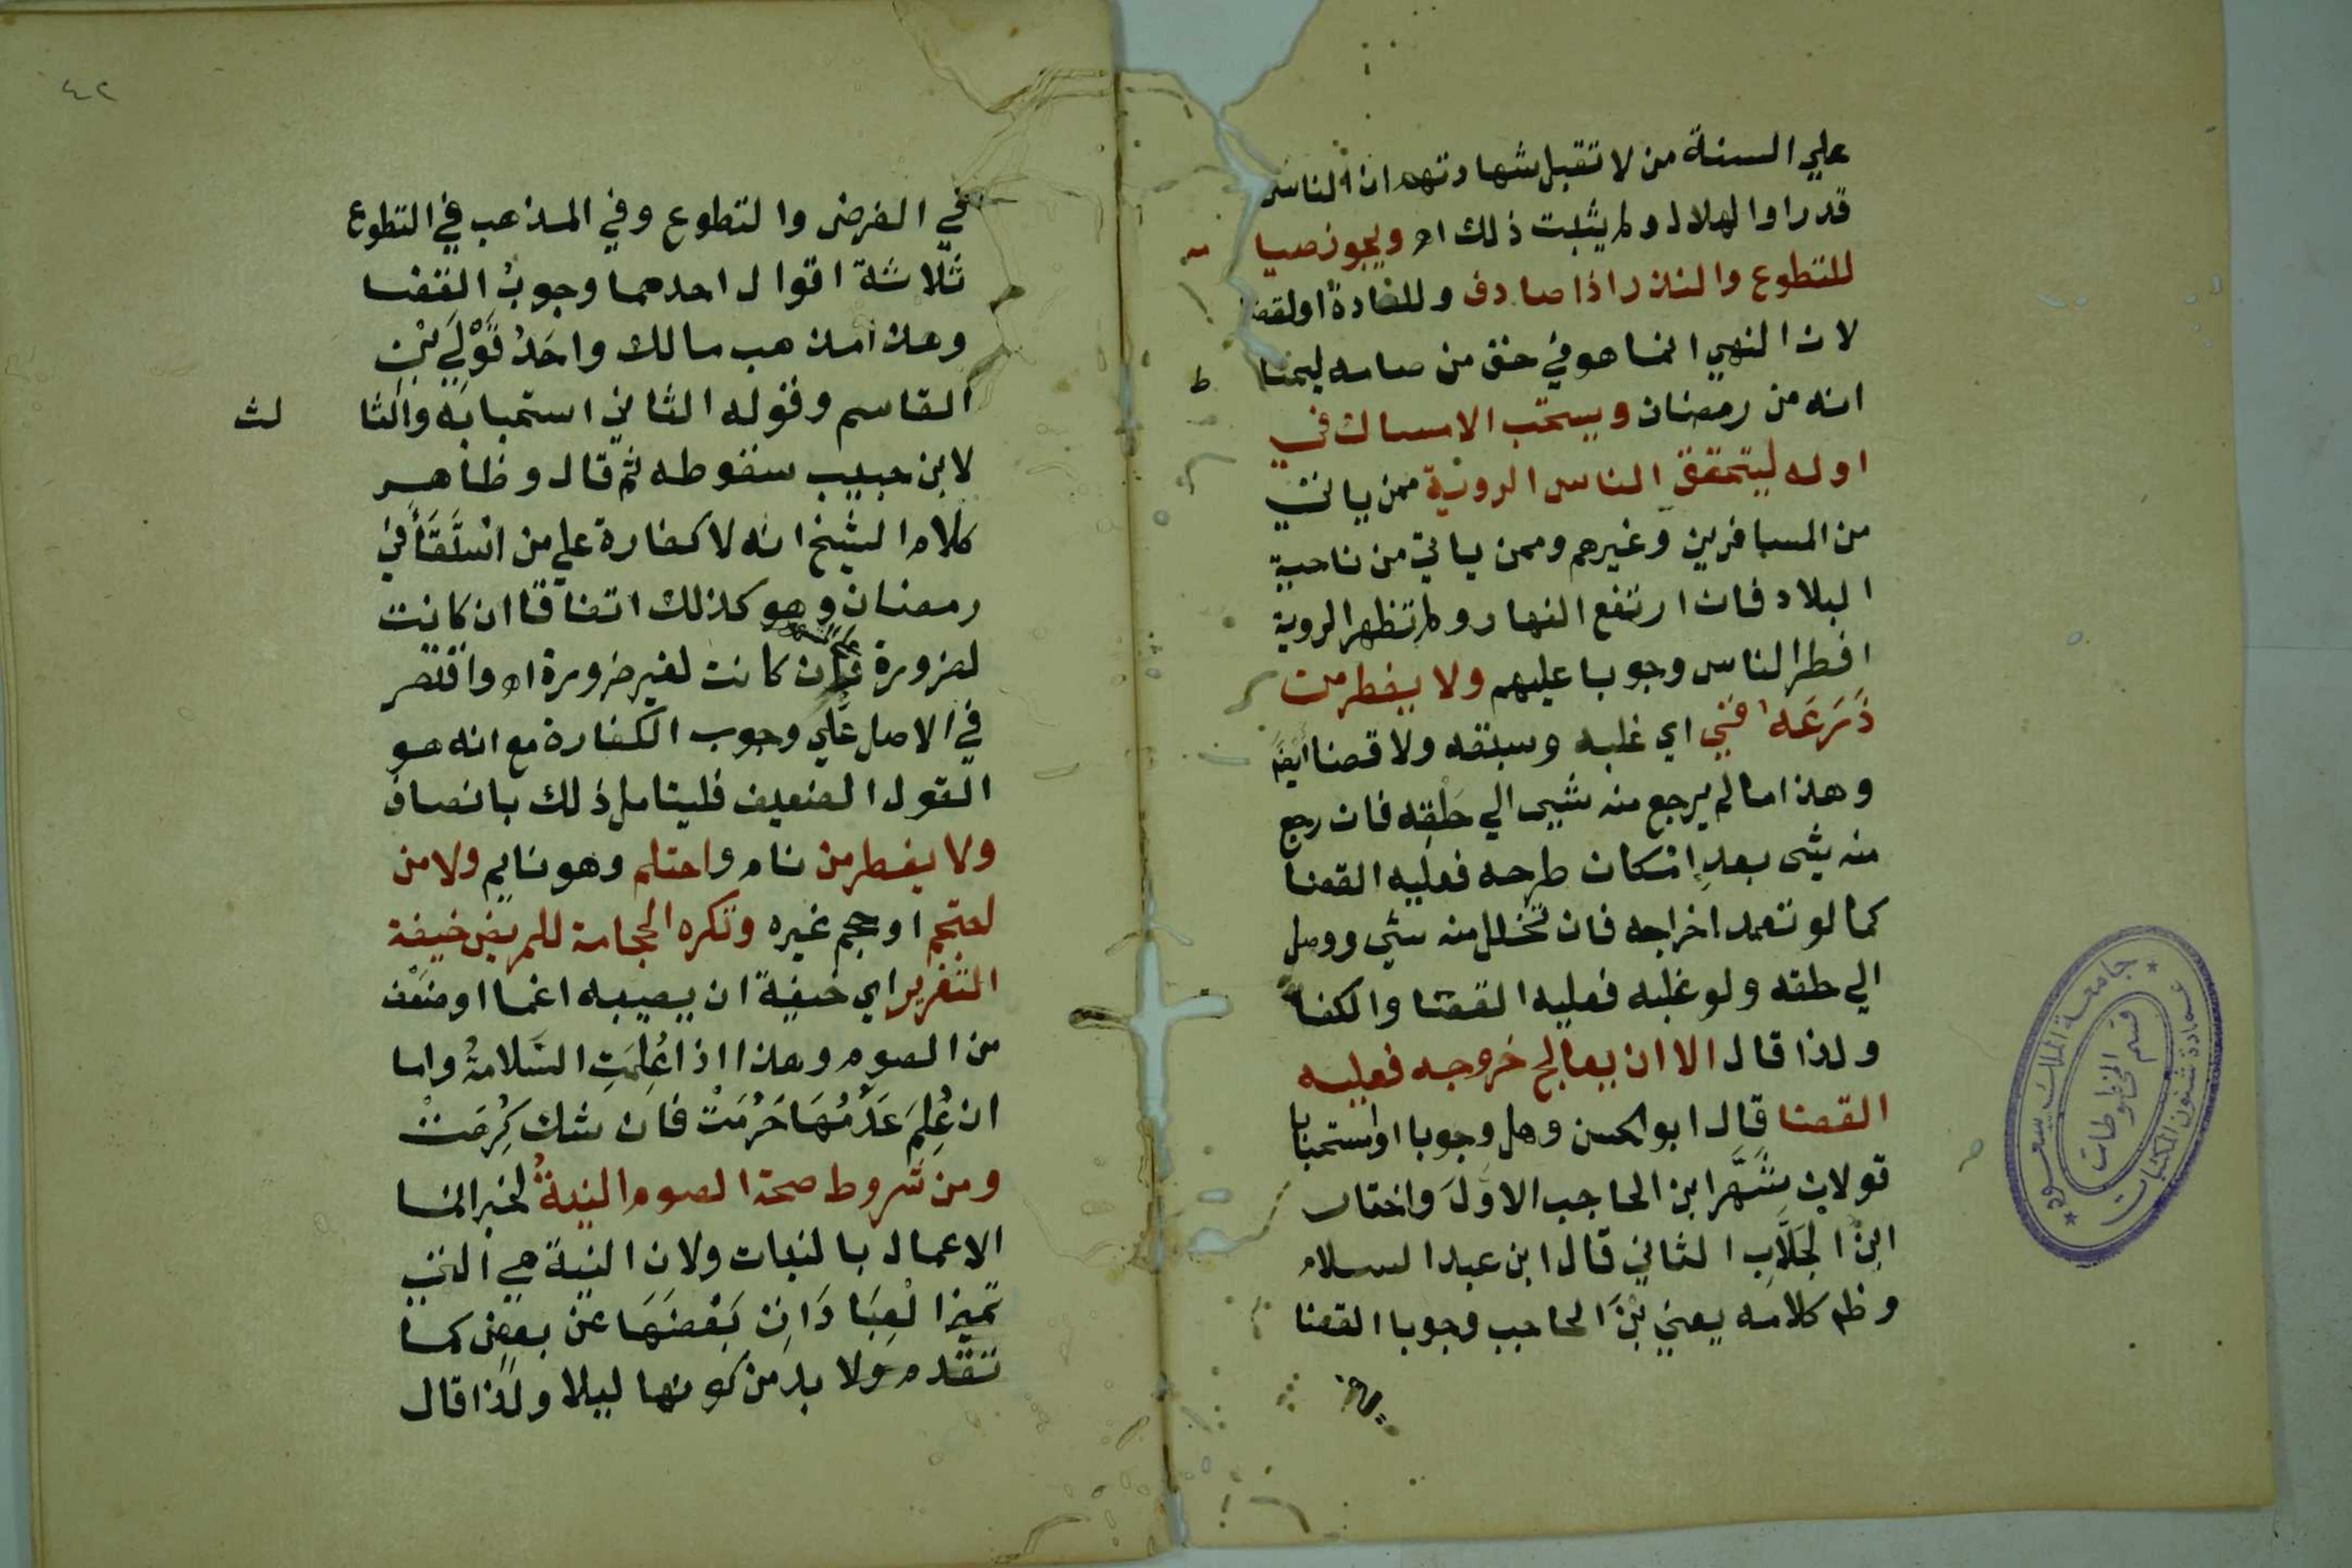 علي السنة من لا تقبل شهادتهم ان الناس
قد راوا الهلال ولم يثبت ذلك اه ويجوز صيا
للتطوع والنذر اذا صادف وللعادة او لقضا
لان النهي انما هو في حق من صامه ليحتا ط
انه من رمضان ويستحب الامساك في
اوله ليتحقق الناس الروية ممن ياتي
من المسافرين وغيرهم وممن ياتي من ناحية
البلاد فان ارتفع النهار ولم تظهر الروية
افطر الناس وجوبا عليهم ولا يفطر من
ذَرَعَه قيي اي غلبه وسبقه ولا قضا ايضا
وهذا ما لم يرجع منه شيي الي حَلْقِه فان رجع
منه شي بعد إِمْكان طرحه فعليه القضا
كما لو تعمد اخراجه فان تخلل منه شي ووصل
الي حلقه ولو غلبه فعليه القضا والكفا
ولذا قال الا ان يعالج خروجه فعليه
القضا قال ابو الحسن وهل وجوبا او استحبابا
قولان شَهَّرَ ابن الحاجب الاوّلَ واختار
ابنُ الجَلَّابِ الثاني قال ابن عبد السلام
وظم كلامه يعني بْنَ الحاجب وجوبا القضا
جامعة الملك سعود
قسم المخطوطات
عمادة شئون المكتبات
٤٢
في الفرض والتطوع وفي المذهب في التطوع
ثلاثة اقوال احدهما وجوبُ القضا
وهذا مذهب مالك واحَدُ قَوْلَي بْنِ
القاسم وقوله الثاني استحبابه والثا لث
لابن حبيب سقوطه ثم قال وظاهر
كلام الشيخ انه لا كفارة علي من اسْتَقَأَ في
رمضان وهو كذلك اتفاقا ان كانت
لضرورة فان كانت لغير ضرورة اه واقتصر
في الاصل علي وجوب الكفارة مع انه هو
القول الضعيف فليتامل ذلك بانصاف
ولا يفطر من نام واحتلم وهو نايم ولا من
احتجم او حجم غيره وتكره الحجامة للمريض خيفة
التغرير اي خيفةً ان يصيبه اغما او ضَعْف
من الصوم وهذا اذا عُلِمَتِ السَّلامةُ واما
ان عُلِمَ عَدَمُهَا حَرُمَتْ فان شك كُرِهَتْ
ومن شروط صحة الصوم النيةُ لخبر انما
الاعمال بالنيات ولان النية هي التي
تميز الْعِبَادَاتِ بَعْضَهَا عن بعض كما
تقدم ولا بد من كونها ليلا ولذا قال